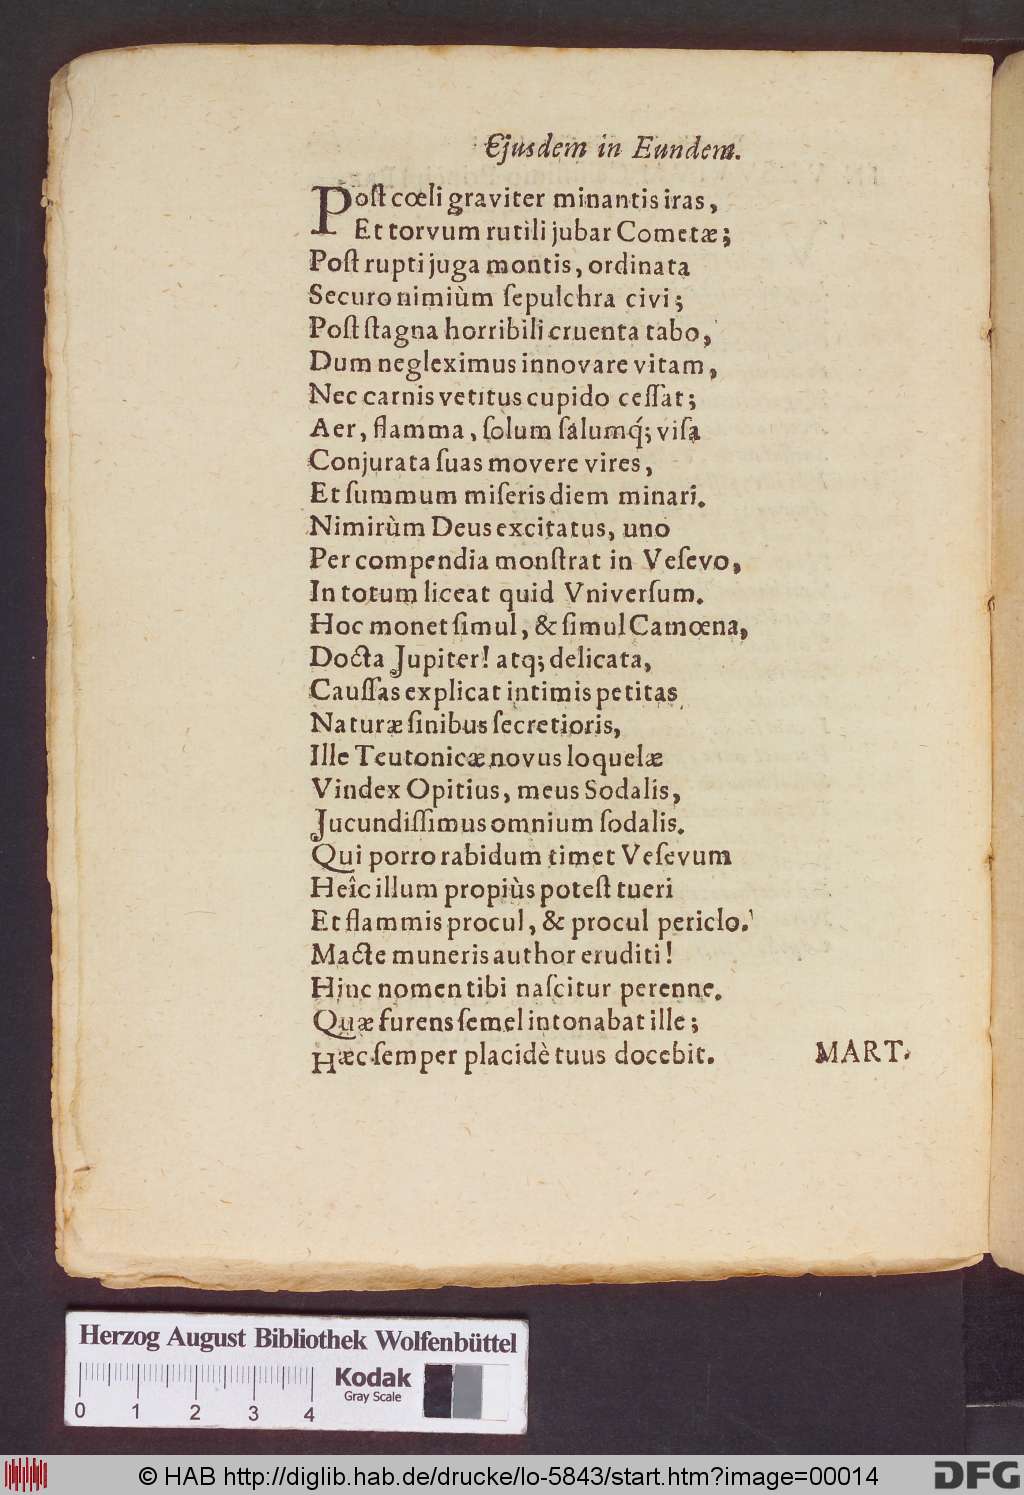 Ejusdem in Eundem.
Poſt cœli graviter minantis iras,
Et torvum rutili jubar Cometæ;
Poſt rupti juga montis, ordinata
Securo nimiùm ſepulchra civi;
Poſt ſtagna horribili cruenta tabo,
Dum negleximus innovare vitam,
Nec carnis vetitus cupido ceſſat;
Aer, flamma, ſolum ſalumq́; viſa
Conjurata ſuas movere vires,
Et ſummum miſeris diem minari.
Nimirùm Deus excitatus, uno
Per compendia monſtrat in Veſevo,
In totum liceat quid Vniverſum.
Hoc monet ſimul, & ſimul Camœna,
Docta Jupiter! atq; delicata,
Cauſſas explicat intimis petitas
Naturæ ſinibus ſecretioris,
Ille Teutonicæ novus loquelæ
Vindex Opitius, meus Sodalis,
Jucundiſſimus omnium ſodalis.
Qui porro rabidum timet Veſevum
Heîc illum propiùs poteſt tueri
Et flammis procul, & procul periclo.
Macte muneris author eruditi!
Hinc nomen tibi naſcitur perenne.
Quæ furens ſemel intonabat ille;
Hæc ſemper placidè tuus docebit.
MART.
Herzog August Bibliothek Wolfenbüttel
0 1 2 3 4
Kodak
Gray Scale
© HAB http://diglib.hab.de/drucke/lo-5843/start.htm?image=00014
DFG